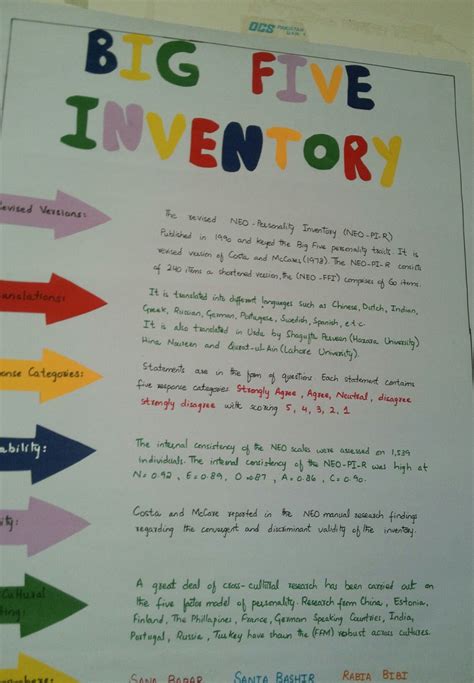 OCS PAKISTAN
BIG FIVE
INVENTORY
evised Versions:
The revised NEO-Personality Inventory (NEO-PI-R)
Published in 1990 and keyed the Big Five personality traits. It is
revised version of Costa and McCares (1978). The NEO-PI-R consists
of 240 items a shortened version, the (NEO-FFI) comprises of 60 items.
anslations:
It is translated into different languages such as Chinese, Dutch, Indian,
Greek, Russian, German, Portugese, Swedish, Spanish, etc
It is also translated in Urdu by Shagufta Perveen (Hazara University)
Hina Noureen and Qurat-ul-Ain (Lahore University).
onse Categories:
Statements are in the form of questions. Each statement contains
five response categories Strongly Agree, Agree, Neutral, disagree
strongly disagree with scoring 5, 4, 3, 2, 1
ability:
The internal consistency of the NEO scales were assessed on 1,539
individuals. The internal consistency of the NEO-PI-R was high at
N= 0.92, E= 0.89, O=087, A= 0.86, C= 0.90.
ity:
Costa and McCare reported in the NEO manual research findings
regarding the convergent and discriminant validity of the inventory.
Cultural
ting:
A great deal of cross-cultural research has been carried out on
the five factor model of personality. Research form China, Estonia,
Finland, The Phillapines, France, German Speaking Countries, India,
Portugal, Russia, Turkey have shown the (FFM) robust across cultures.
SANIA BASHIR RABIA BIBI